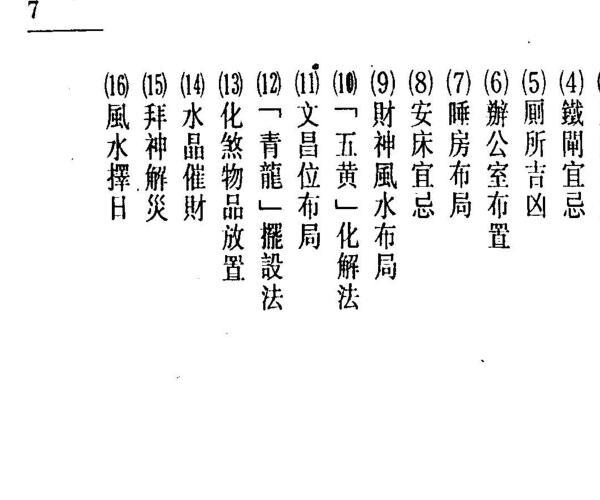 7
(4)鐵閘宜忌
(5)厠所吉凶
(6)辦公室布置
(7)睡房布局
(8)安床宜忌
(9)財神風水布局
(10)「五黄」化解法
(11)文昌位布局
(12)「青龍」擺設法
(13)化煞物品放置
(14)水晶催財
(15)拜神解災
(16)風水擇日